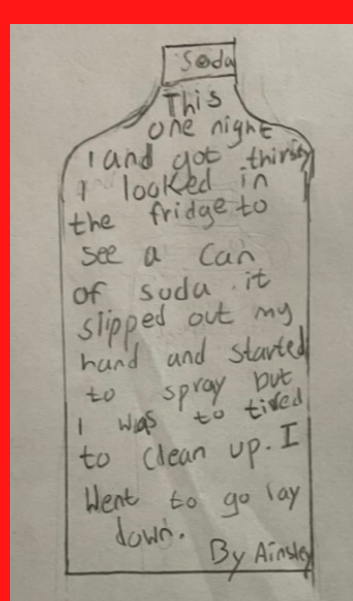 Soda
This
one night
I and got thirsty
I looked in
the fridge to
see a can
of suda it
slipped out my
hand and started
to spray but
I was to tired
to clean up. I
Went to go lay
down.
By Ainsley